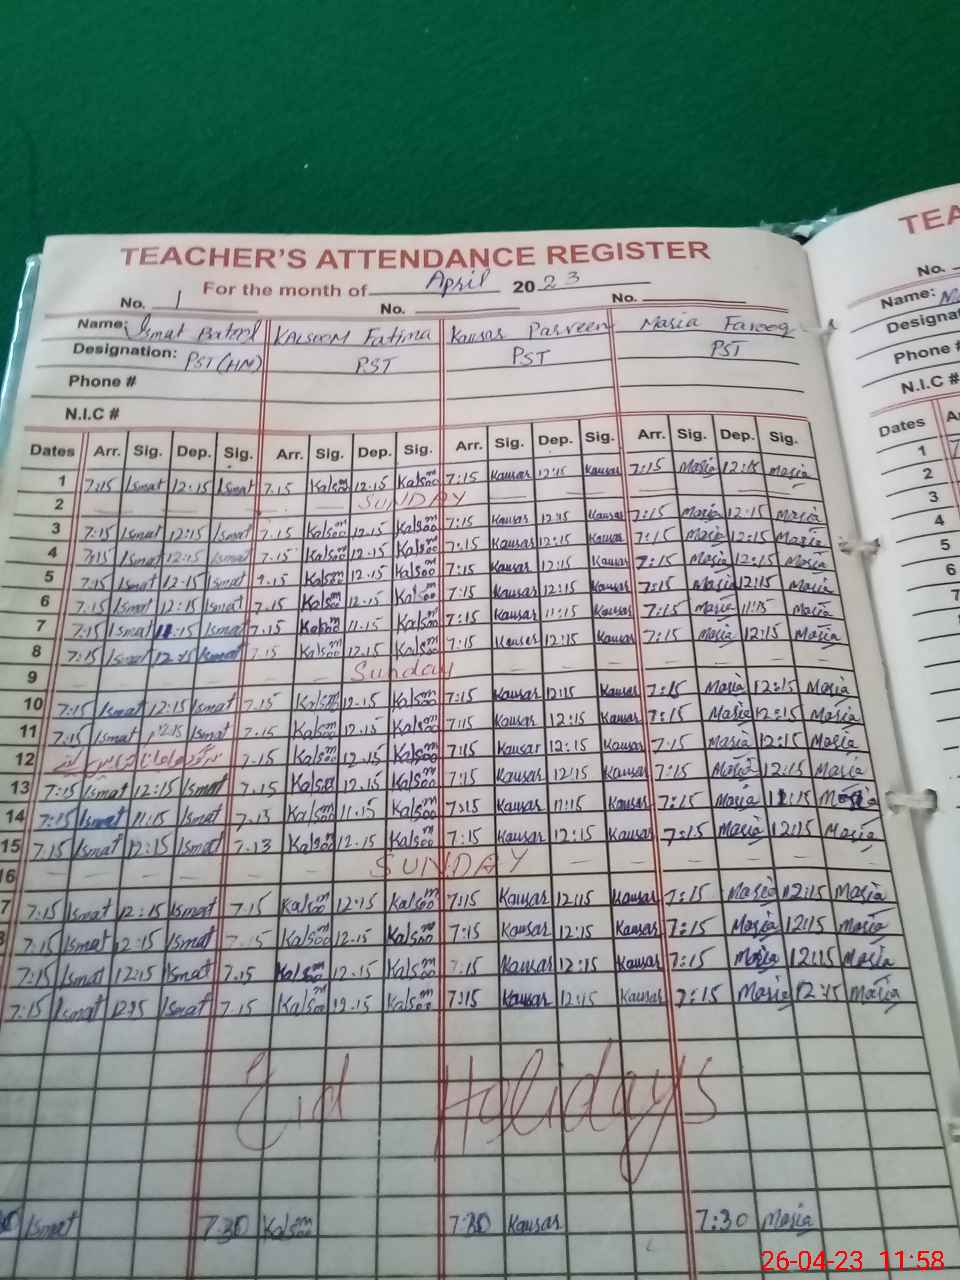 TEACHER'S ATTENDANCE REGISTER
For the month of April 2023
No. 1 No. No.
Name: Ismat Batool KALSOOM Fatima Kausar Parveen Maria Farooq
Designation: PST (HM) PST PST PST
Phone #
N.I.C #
Dates Arr. Sig. Dep. Sig. Arr. Sig. Dep. Sig. Arr. Sig. Dep. Sig. Arr. Sig. Dep. Sig.
1 7:15 Ismat 12:15 Ismat 7.15 Kalsoom 12.15 Kalsoom 7:15 Kausar 12:15 Kausar 7:15 Maria 12:15 Maria
2 SUNDAY
3 7:15 Ismat 12:15 Ismat 7.15 Kalsoom 12.15 Kalsoom 7:15 Kausar 12:15 Kausar 7:15 Maria 12:15 Maria
4 7:15 Ismat 12:15 Ismat 7.15 Kalsoom 12.15 Kalsoom 7:15 Kausar 12:15 Kausar 7:15 Maria 12:15 Maria
5 7:15 Ismat 12:15 Ismat 7.15 Kalsoom 12.15 Kalsoom 7:15 Kausar 12:15 Kausar 7:15 Maria 12:15 Maria
6 7:15 Ismat 12:15 Ismat 7.15 Kalsoom 12.15 Kalsoom 7:15 Kausar 12:15 Kausar 7:15 Maria 12:15 Maria
7 7:15 Ismat 11:15 Ismat 7.15 Kalsoom 11.15 Kalsoom 7:15 Kausar 11:15 Kausar 7:15 Maria 11:15 Maria
8 7:15 Ismat 12:15 Ismat 7.15 Kalsoom 12.15 Kalsoom 7:15 Kauser 12:15 Kausar 7:15 Maria 12:15 Maria
9 Sunday
10 7:15 Ismat 12:15 Ismat 7.15 Kalsoom 12.15 Kalsoom 7:15 Kausar 12:15 Kausar 7:15 Maria 12:15 Maria
11 7:15 Ismat 12:15 Ismat 7.15 Kalsoom 12.15 Kalsoom 7:15 Kausar 12:15 Kausar 7:15 Maria 12:15 Maria
12 7.15 Kalsoom 12.15 Kalsoom 7:15 Kausar 12:15 Kausar 7:15 Maria 12:15 Maria
13 7:15 Ismat 12:15 Ismat 7.15 Kalsoom 12.15 Kalsoom 7:15 Kausar 12:15 Kausar 7:15 Maria 12:15 Maria
14 7:15 Ismat 11:15 Ismat 7.13 Kalsoom 11.15 Kalsoom 7:15 Kausar 11:15 Kausar 7:15 Maria 11:15 Maria
15 7.15 Ismat 12:15 Ismat 7.13 Kalsoom 12.15 Kalsoom 7:15 Kausar 12:15 Kausar 7:15 Maria 12:15 Maria
16 SUNDAY
7 7:15 Ismat 12:15 Ismat 7.15 Kalsoom 12.15 Kalsoom 7:15 Kausar 12:15 Kausar 7:15 Maria 12:15 Maria
8 7:15 Ismat 12:15 Ismat 7.15 Kalsoom 12.15 Kalsoom 7:15 Kausar 12:15 Kausar 7:15 Maria 12:15 Maria
7:15 Ismat 12:15 Ismat 7.15 Kalsoom 12.15 Kalsoom 7:15 Kausar 12:15 Kausar 7:15 Maria 12:15 Maria
7:15 Ismat 12:15 Ismat 7.15 Kalsoom 12.15 Kalsoom 7:15 Kausar 12:15 Kausar 7:15 Maria 12:15 Maria
Eid Holidays
Ismat 7:30 Kalsoom 7:30 Kausar 7:30 Maria
TEA
No.
Name:
Designa
Phone #
N.I.C #
Dates
1
2
3
4
5
6
7
26-04-23 11:58